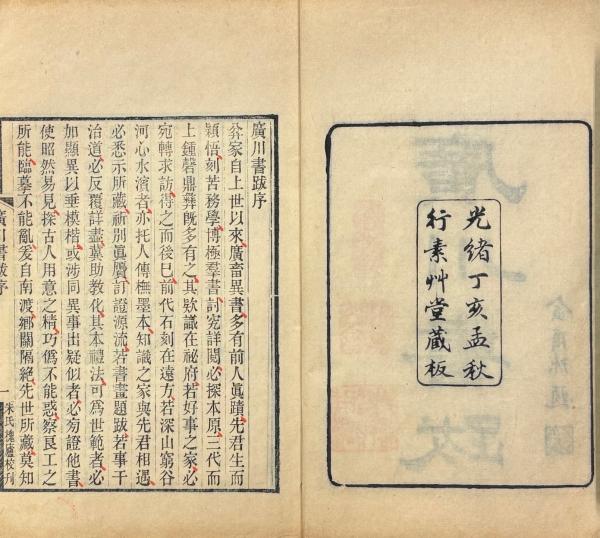 光緒丁亥孟秋
行素艸堂藏板
廣川書跋序
弅家自上世以來廣畜異書多有前人眞蹟先君生而
穎悟刻苦務學博極羣書討究詳閱必探本原三代而
上鍾磬鼎彝旣多有之其欵識在祕府若好事之家必
宛轉求訪得之而後已前代石刻在遠方若深山窮谷
河心水濱者亦托人傳橅墨本知識之家與先君相遇
必悉示所藏祈別眞贋訂證源流若書畫題跋若事干
治道必反覆詳盡冀助教化其本禮法可爲世範者必
加顯異以垂模楷或涉同異事出疑似者必旁證他書
使昭然易見探古人用意之精巧僞不能惑察良工之
所能臨摹不能亂爰自南渡鄉關隔絶先世所藏莫知
廣川書跋序
一
朱氏槐廬校刊